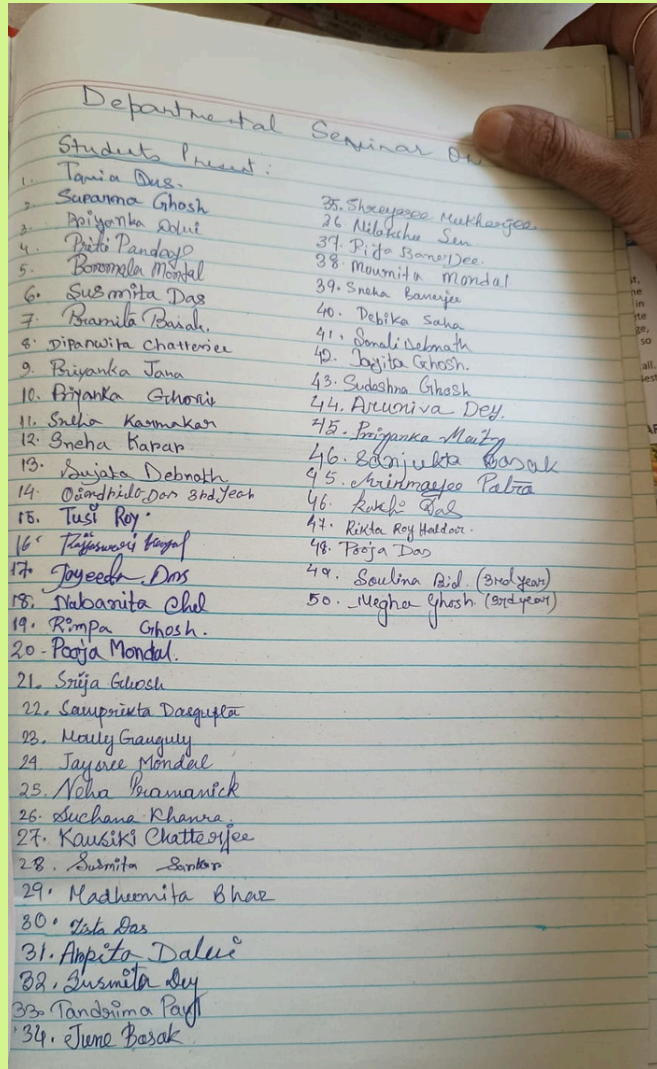 Departmental Seminar On
Students Present:
1. Tania Das.
2. Suparna Ghosh
3. Priyanka Dolui
4. Priti Pandey
5. Mondal
6. Susmita Das
7. Pramila Basak.
8. Dipanwita Chatterjee
9. Priyanka Jana
10. Priyanka Ghorui
11. Sneha Karmakar
12. Sneha Karar
13. Sujata Debnath
14. Das 3rd Year
15. Tusi Roy.
16.
17. Joyeeda Das
18. Nabanita Chel
19. Rimpa Ghosh.
20. Pooja Mondal.
21. Srija Ghosh
22. Samprikta Dasgupta
23. Mouly Ganguly
24. Jaysree Mondal
25. Neha Pramanick
26. Suchana Khanra.
27. Kausiki Chatterjee
28. Susmita Sarkar
29. Madhumita Bhar
30. Tista Das
31. Arpita Dalui
32. Susmita Dey
33. Tandrima
34. June Basak
35. Shreyasee Mukherjee
36 Nilakshi Sen
37. Piya Banerjee.
38. Moumita Mondal
39. Sneha Banerjee
40. Debika Saha
41. Sonali Debnath
42. Joyita Ghosh.
43. Sudeshna Ghosh
44. Aruniva Dey.
45. Priyanka Maity
46. Sanjukta Basak
45. Mrinmayee Patra
46. Rakhi Das
47. Rikta Roy Haldar.
48. Pooja Das
49. Soulina Bid. (3rd year)
50. Megha Ghosh. (3rd year)